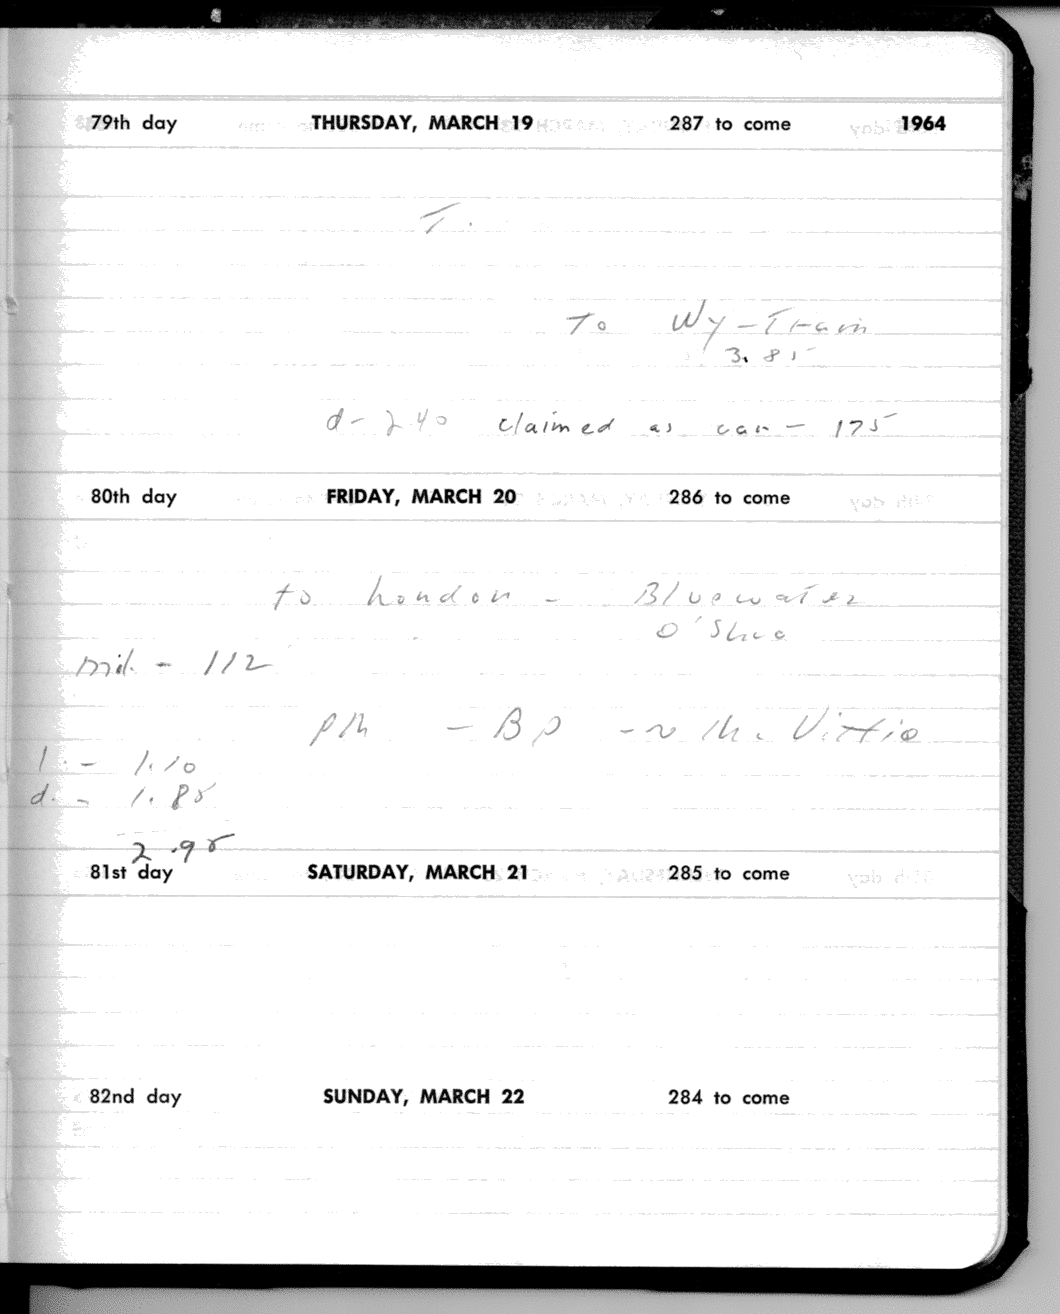 79th day THURSDAY, MARCH 19 287 to come 1964
T.
To Wy - Train
3.85
d - 240 claimed as car - 175
80th day FRIDAY, MARCH 20 286 to come
to London - Bluewater
O'Shea
mil. - 112
pm - BP - Vittie
l. - 1.10
d. - 1.85
2.95
81st day SATURDAY, MARCH 21 285 to come
82nd day SUNDAY, MARCH 22 284 to come